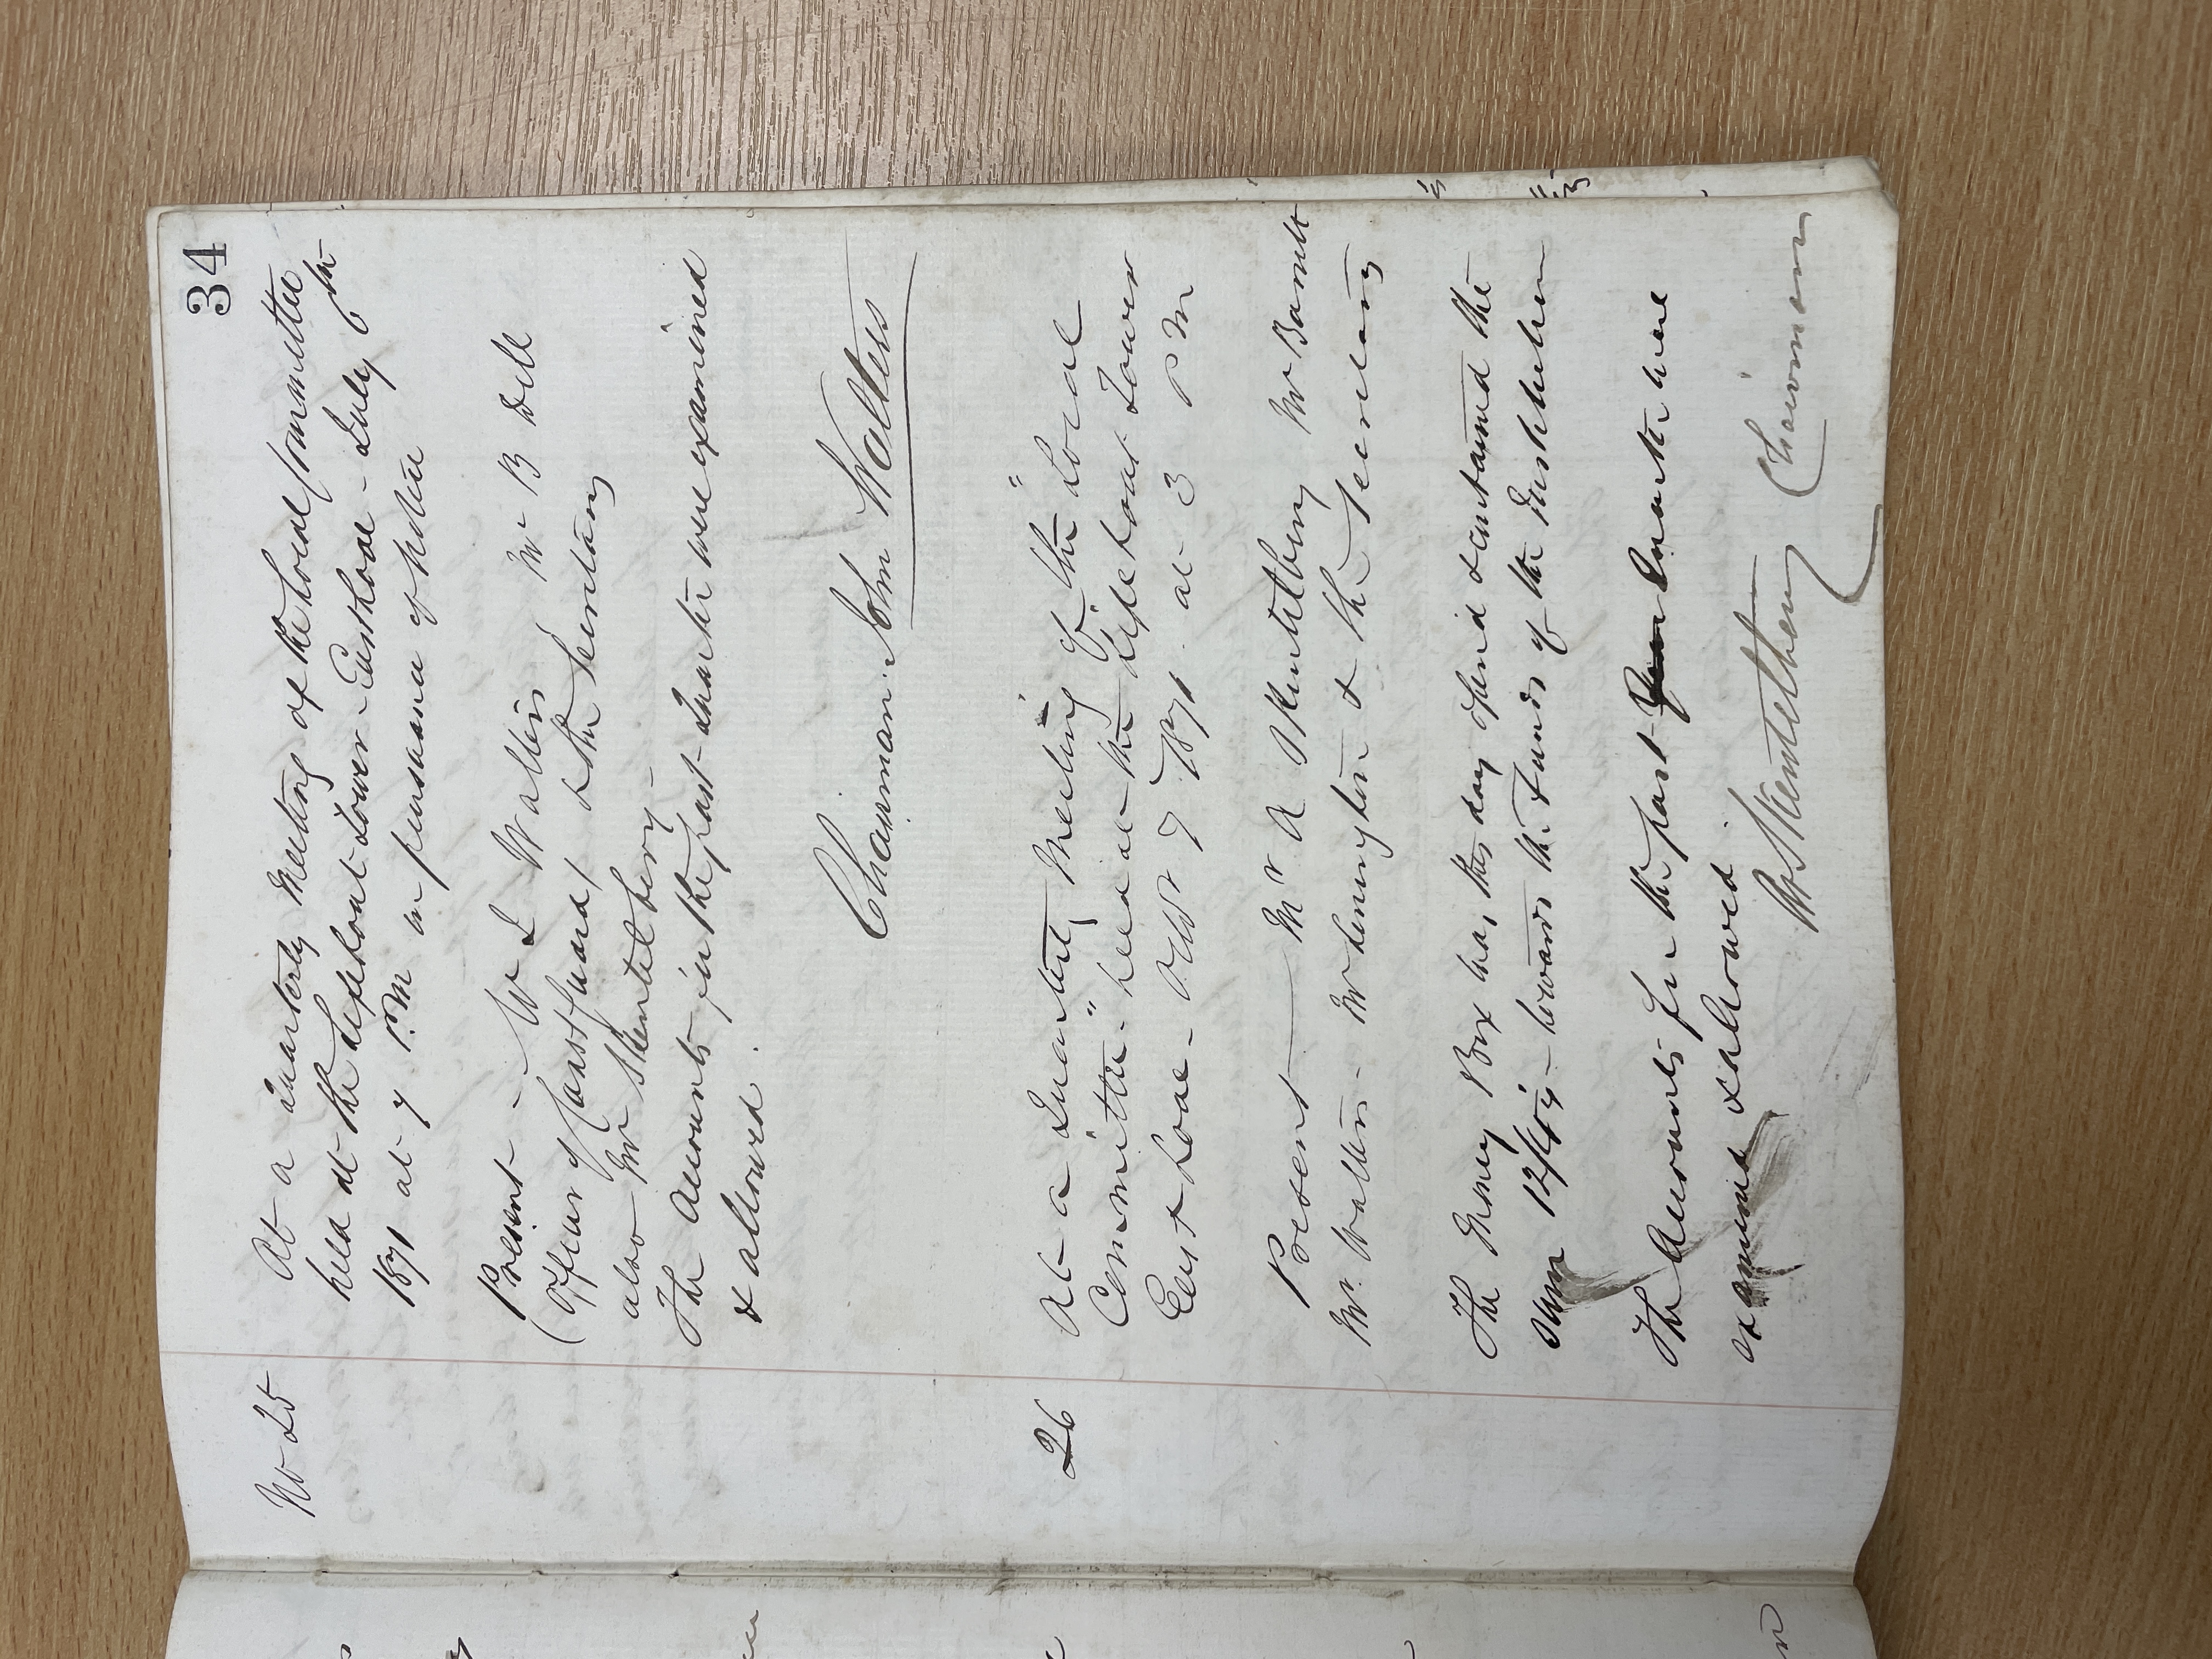 34
No 25
At a Quarterly Meeting of the Local Committee
held at the Lifeboat Tower - East Looe - July 6th
1871 at 7 P.M in pursuance of Notice
Present - W J Walters Mr B Dell
(Officer of Coastguard) & the Secretary
also Mr Skentelbery -
The Accounts for the past Quarter were examined
& allowed.
Chairman. John Walters
26
At a Quarterly Meeting of the "Local
Committee" held at the Lifeboat Tower
East Looe - Octr 7 1871 at 3 P M
Present — Mr A Skentelbery Mr
Mr. Walters - Mr & the Secretary
The Money Box was this day opened & contained the
sum towards the Funds of the Institution
The Accounts for the past Year Quarter were
examined & allowed.
Skentelbery Chairman